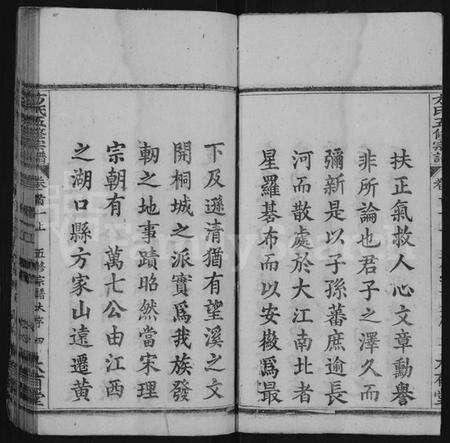 方氏五修宗譜
扶正氣救人心文章勳譽
非所論也君子之澤久而
彌新是以子孫蕃庶逾長
河而散處於大江南北者
星羅碁布而以安徽爲最
下及遜清猶有望溪之文
開桐城之派實爲我族發
軔之地事蹟昭然當宋理
宗朝有 萬七公由江西
之湖口縣方家山遠遷黃
方氏五修宗譜 卷首一上 五修宗譜大序 四